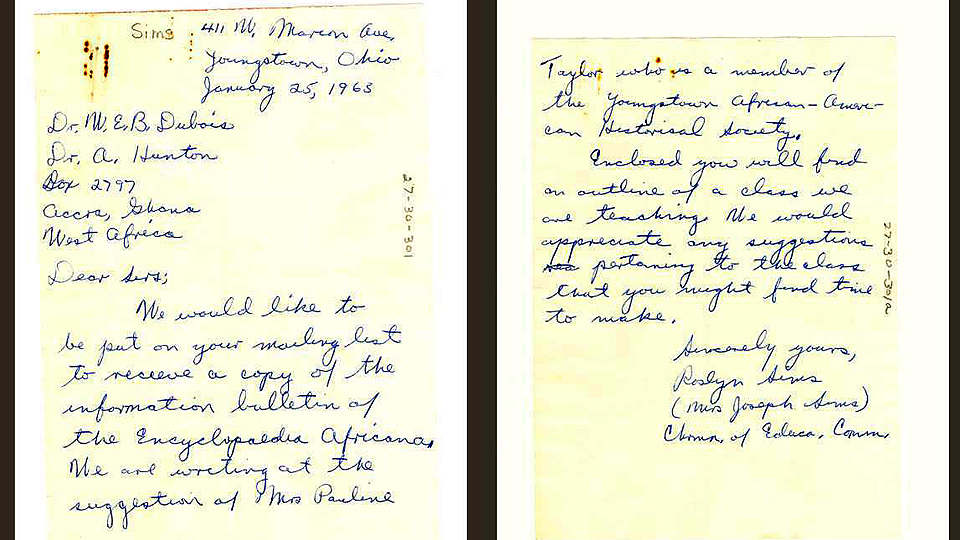 Sims
411 W. Marion Ave,
Youngstown, Ohio
January 25, 1963
Dr. W. E. B. Dubois
Dr. A. Hunton
Box 2797
Accra, Ghana
West Africa
27-30-301
Dear sirs;
We would like to
be put on your mailing list
to receive a copy of the
information bulletin of
the Encyclopaedia Africana.
We are writing at the
suggestion of Mrs Pauline
Taylor who is a member of
the Youngstown African-Ameri-
can Historisal Society.
Enclosed you will find
an outline of a class we
are teaching. We would
appreciate any suggestions
pertaining to the class
that you might find time
to make.
27-30-301a
Sincerely yours,
Roslyn Sims
(Mrs Joseph Sims)
Chrmn. of Educa. Comm.